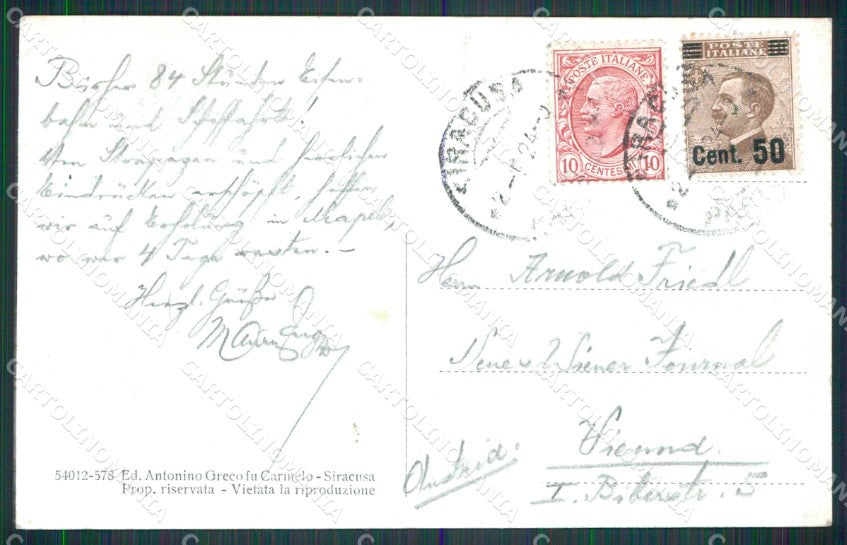 Bisher 84 Stunden Eisen-
bahn und Schiffahrt!
Von Strapazen und herrlichen
Eindrücken erschöpft, hoffen
wir auf Erholung in Neapel,
wo wir 4 Tage rasten. –
Herzl. Grüße
POSTE ITALIANE
10 CENTES 10
POSTE
ITALIANE
Cent. 50
SIRACUSA
SIRACUSA
Herrn Arnold Friedl
Neues Wiener Journal
Vienna.
Austria:
I. Biberstr. 5
54012-578 Ed. Antonino Greco fu Carmelo - Siracusa
Prop. riservata - Vietata la riproduzione
CARTOLINOMANIA